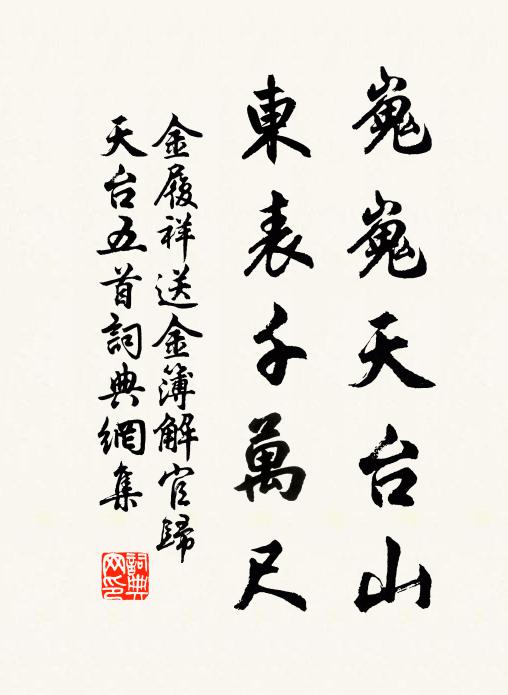 嵬嵬天台山
東表千萬尺
金履祥送金簿解官歸
天台五首詞典網集
詞典
網印